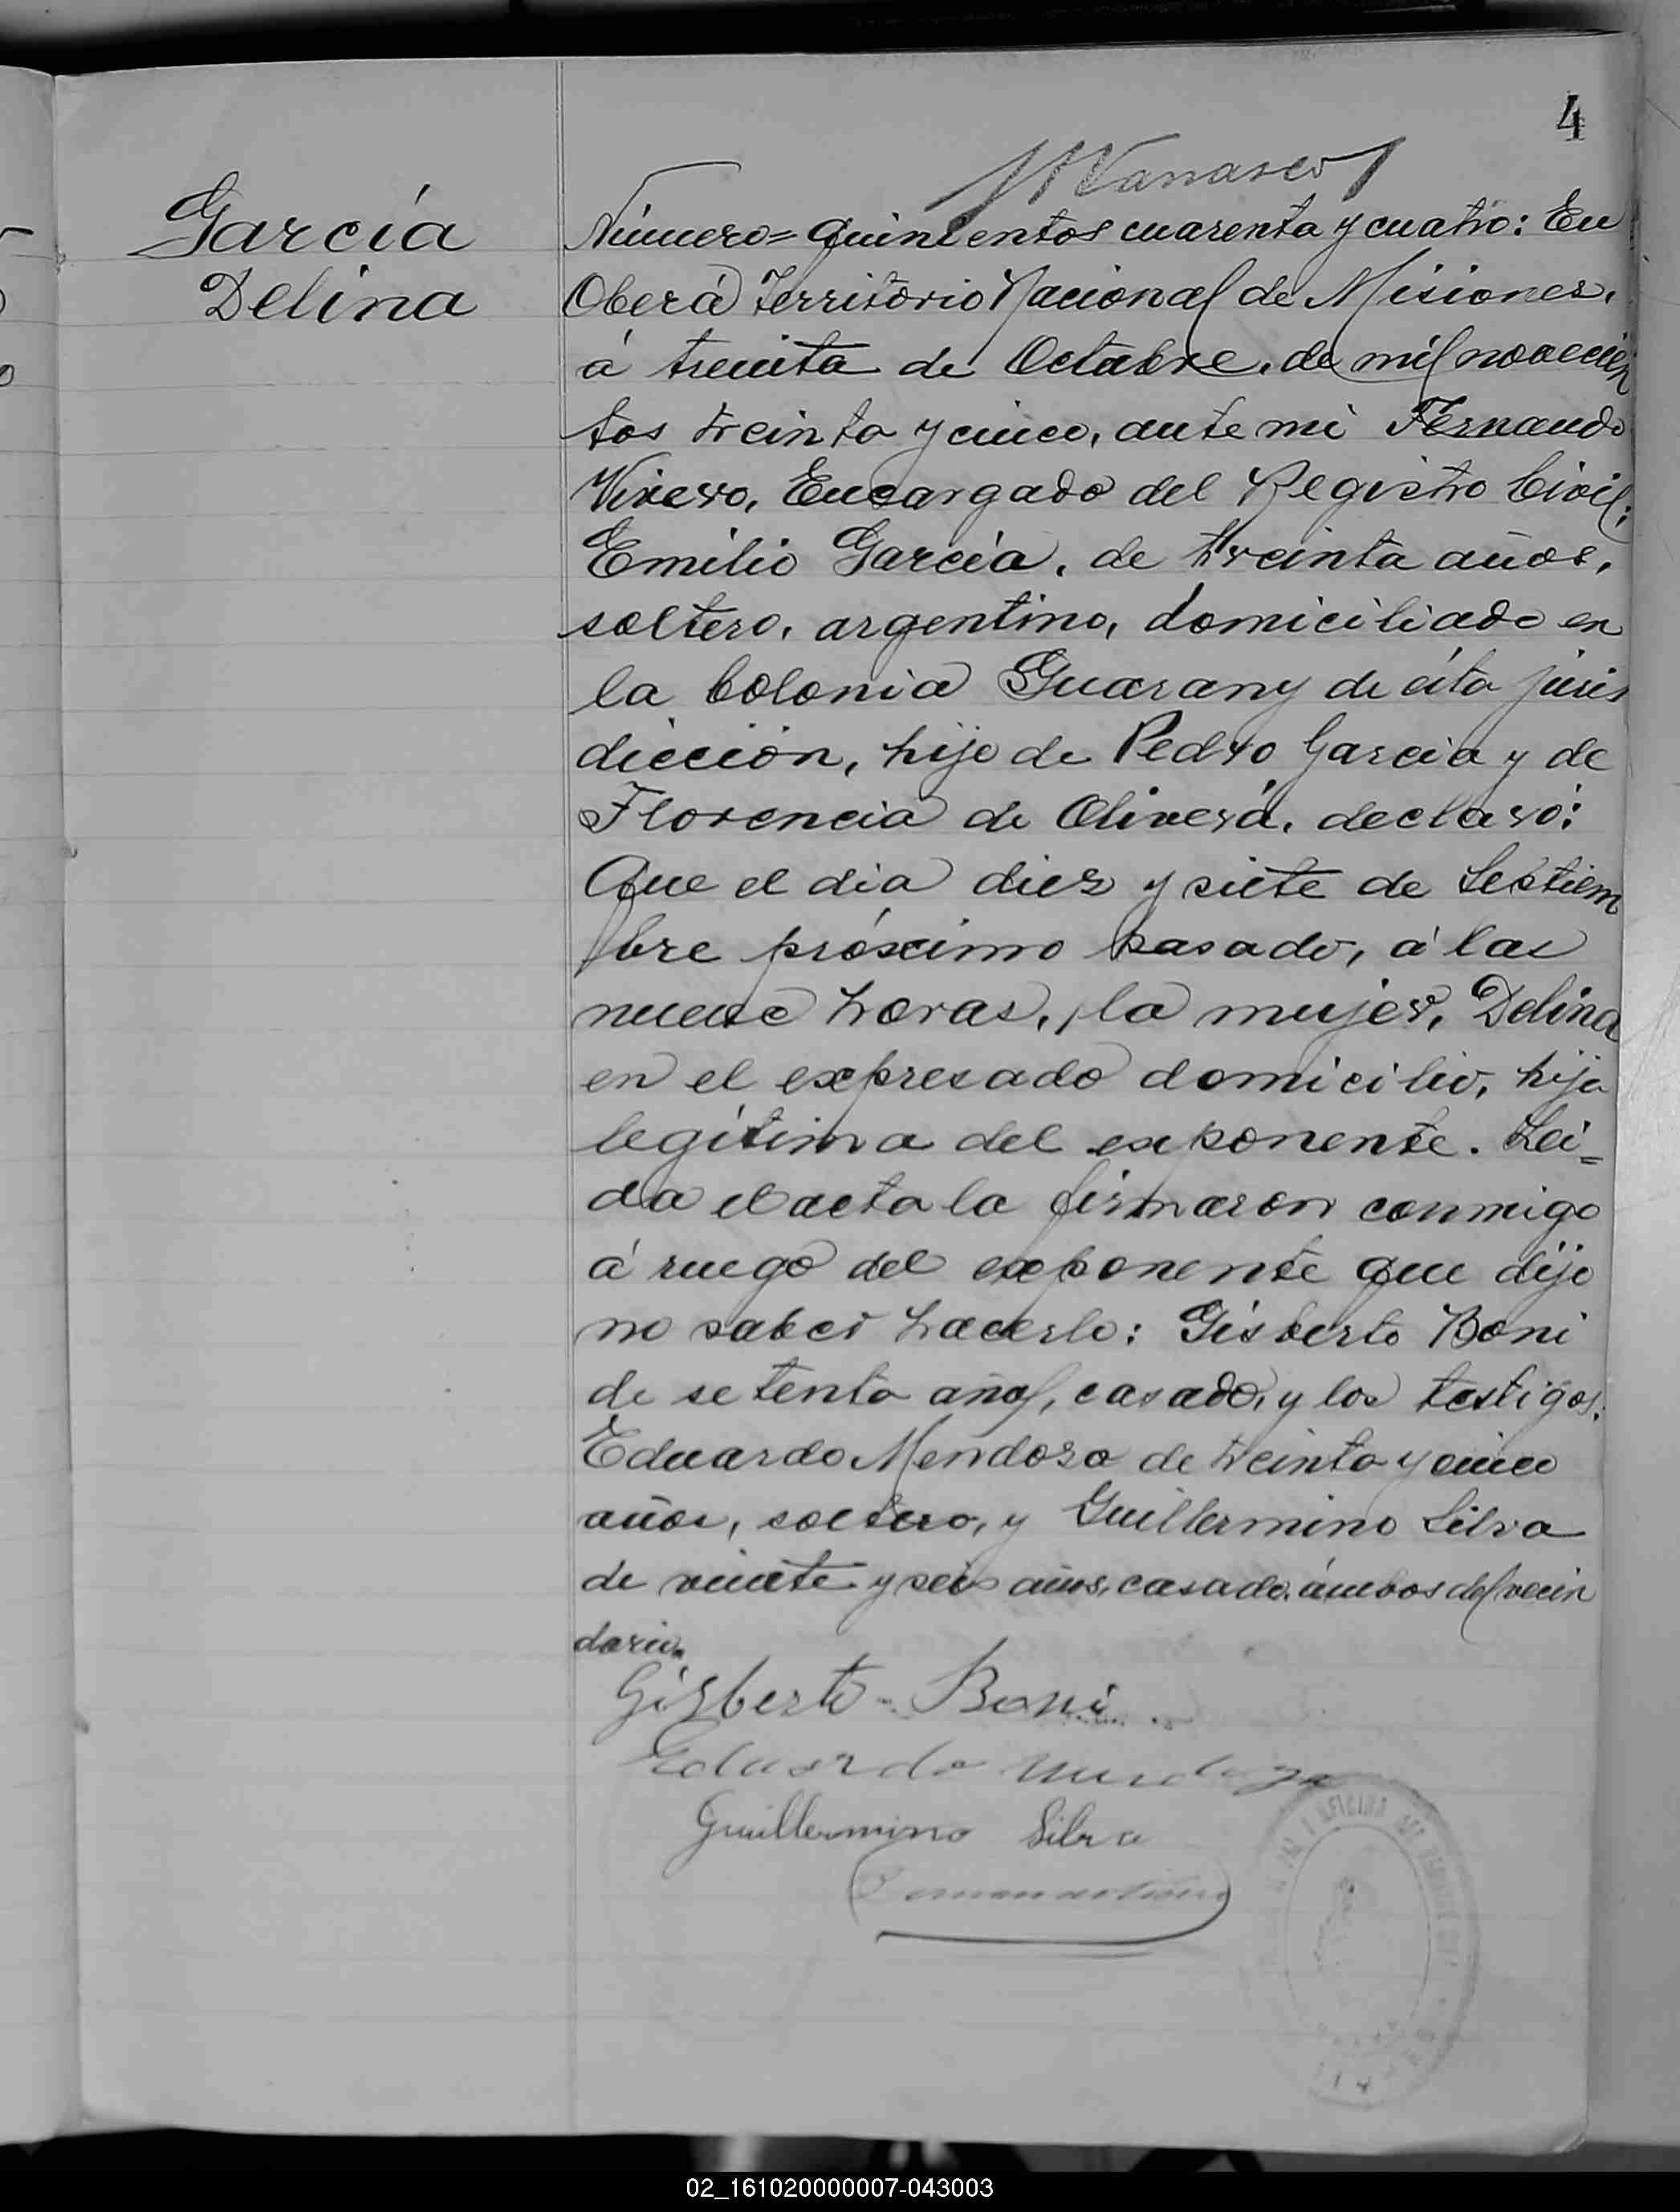 4
García
Delina
Número= quinientos cuarenta y cuatro: En
Oberá Territorio Nacional de Misiones,
á treinta de Octubre, de mil novecien
tos treinta y cinco, ante mi Fernando
Vivero, Encargado del Registro Civil;
Emilio García, de treinta años,
soltero, argentino, domiciliado en
la Colonia Guarany de ésta juris
dicción, hijo de Pedro García y de
Florencia de Olivera, declaró:
Que el dia diez y siete de Septiem
bre próximo pasado, á las
nueve horas, la mujer, Delina
en el expresado domicilio, hija
legítima del exponente. Lei=
da el acta la firmaron conmigo
á ruego del exponente que dijo
no saber hacerlo: Gisberto Boni
de setenta años, casado, y los testigos:
Eduardo Mendoza de treinta y cinco
años, soltero, y Guillermino Silva
de veinte y seis años, casado, ámbos del vecin
dario.
Gisberto Boni
Eduardo Mendoza
Guillermino Silva
02_161020000007-043003